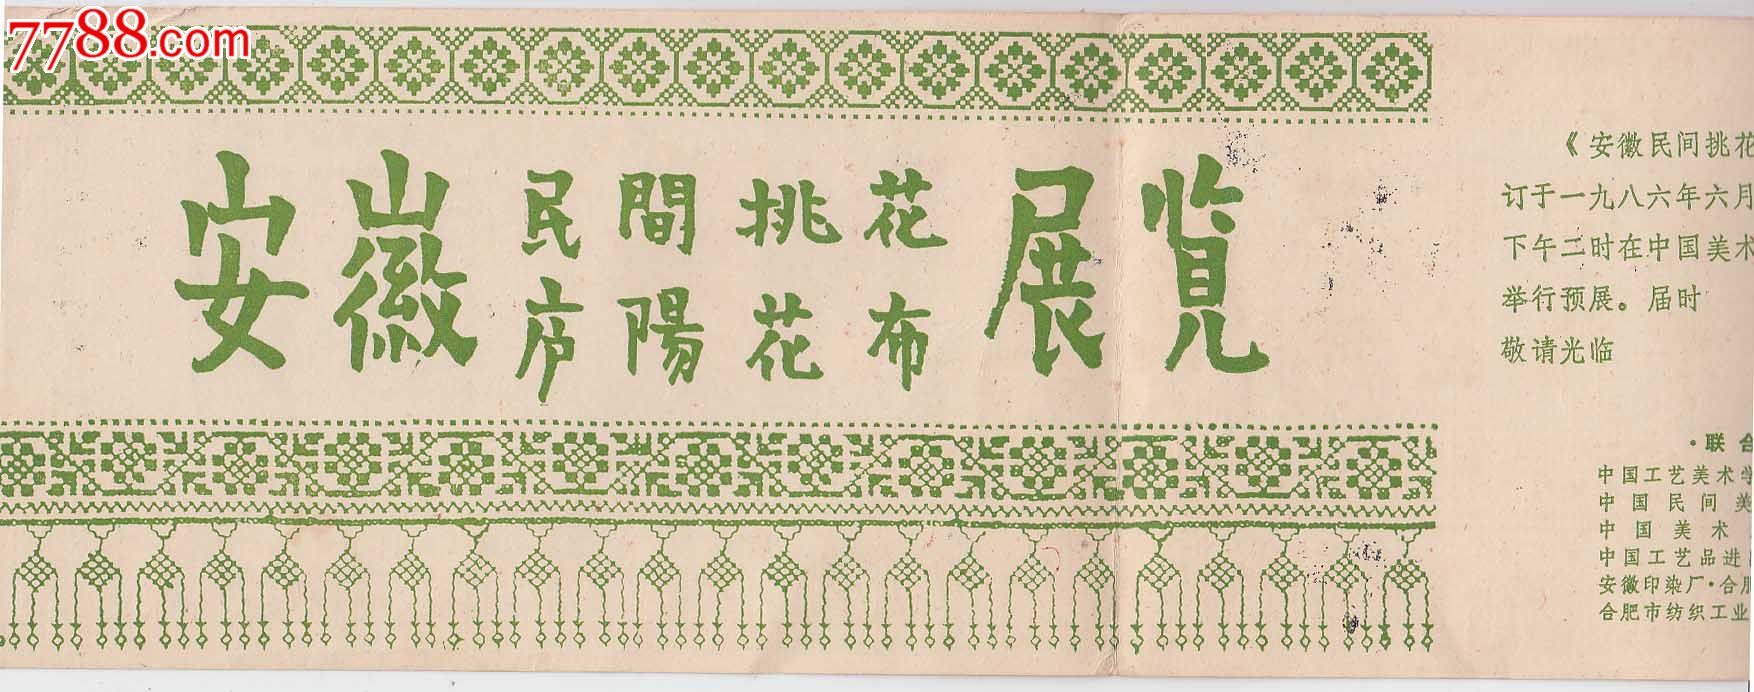 7788.com
安徽民間挑花展览
庐陽花布
《安徽民间挑花
订于一九八六年六月
下午二时在中国美术
举行预展。届时
敬请光临
·联合
中国工艺美术学
中国民间美
中国美术
中国工艺品进
安徽印染厂·合肥
合肥市纺织工业